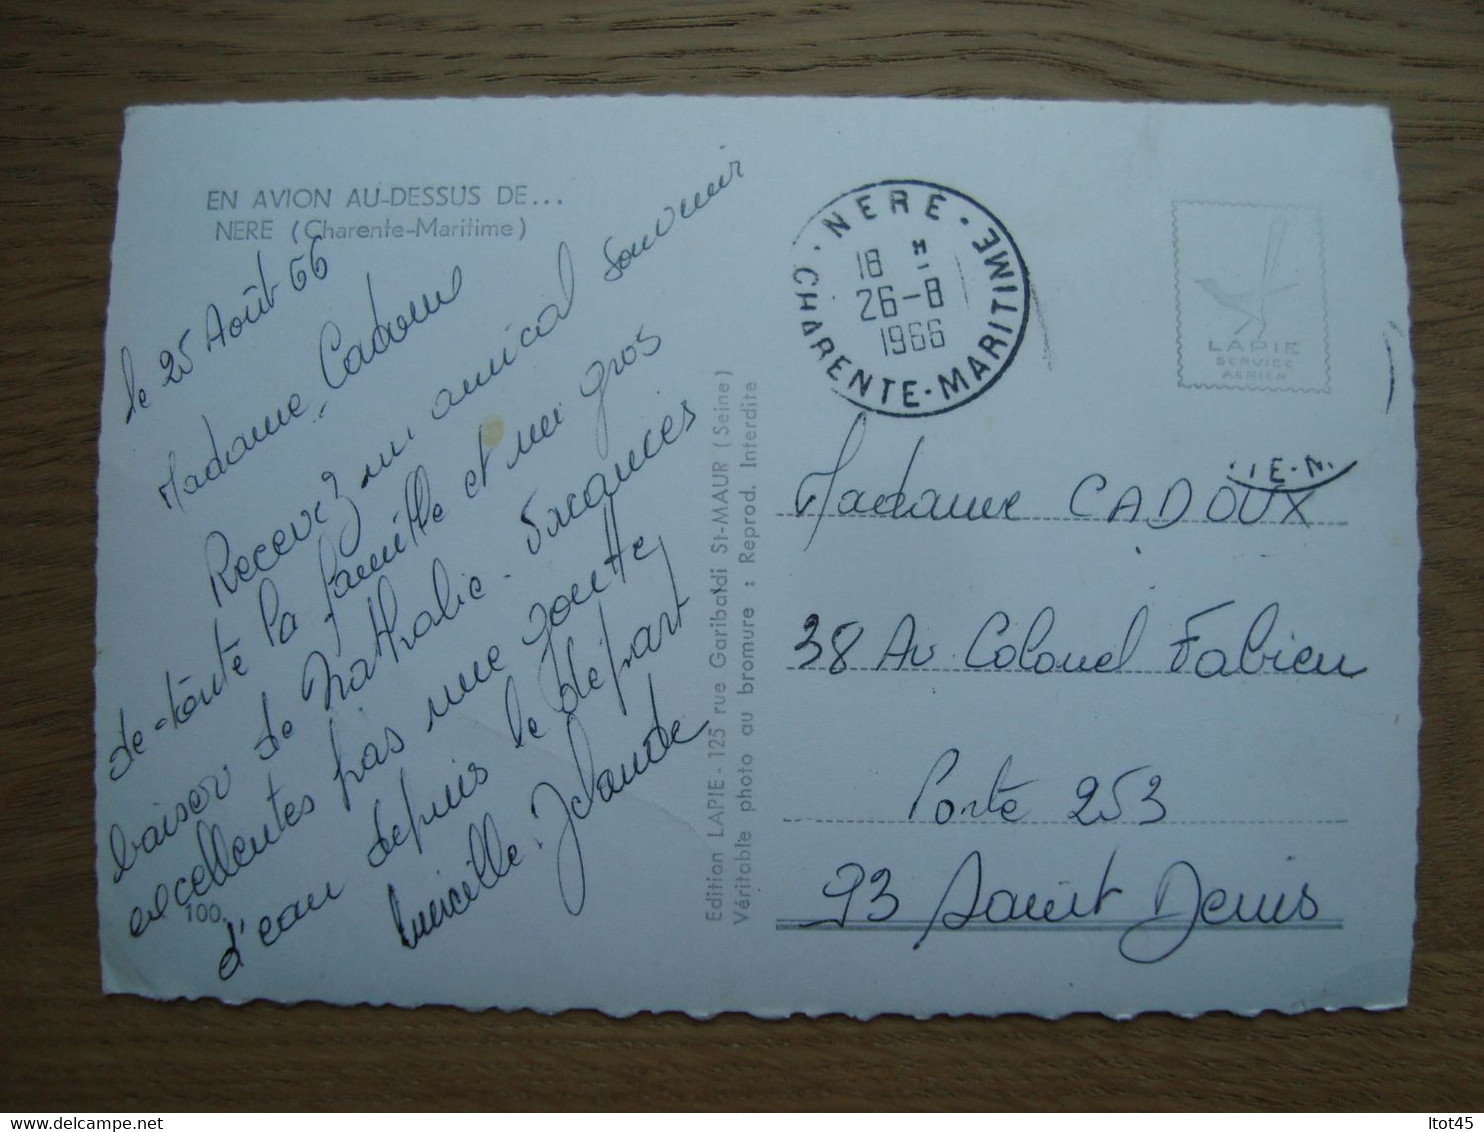 EN AVION AU-DESSUS DE...
NERE (Charente-Maritime)
le 25 Août 66
Madame Cadoux
Recevez un amical souvenir
de toute la famille et un gros
baiser de Nathalie - Vacances
excellentes pas une goutte
d'eau depuis le départ
100
Edition LAPIE - 125 rue Garibaldi St-MAUR (Seine)
Véritable photo au bromure : Reprod. Interdite
NERE
18 H
26-8
1966
CHARENTE-MARITIME
LAPIE
SERVICE
AERIEN
Madame CADOUX
38 Av Colonel Fabien
Porte 253
93 Saint Denis
ltot45